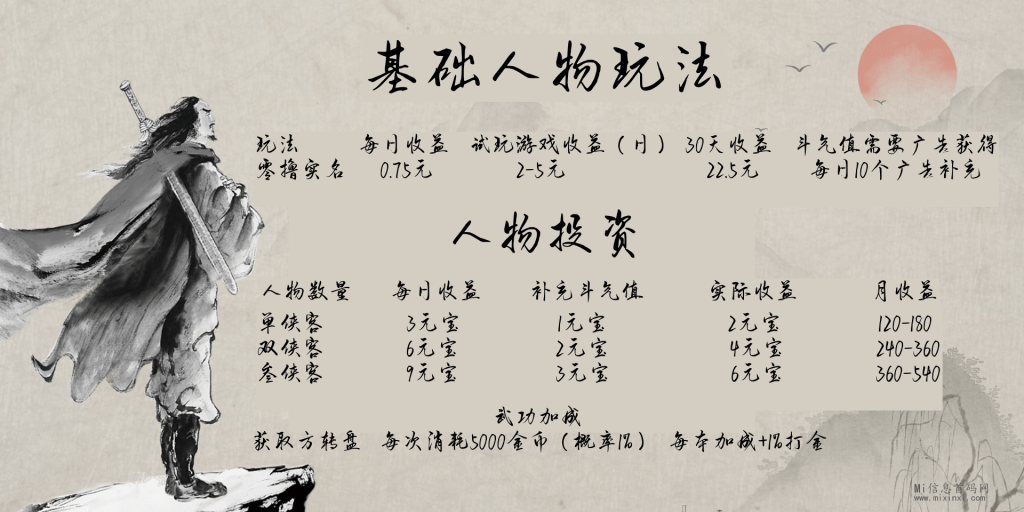 基础人物玩法
玩法 每日收益 试玩游戏收益（日） 30天收益 斗气值需要广告获得
零撸实名 0.75元 2-5元 22.5元 每日10个广告补充
人物投资
人物数量 每日收益 补充斗气值 实际收益 月收益
单侠客 3元宝 1元宝 2元宝 120-180
双侠客 6元宝 2元宝 4元宝 240-360
叁侠客 9元宝 3元宝 6元宝 360-540
武功加成
获取方转盘 每次消耗5000金币（概率1%） 每本加成+1%打金
Mi信息首码网
www.mixinxi.com